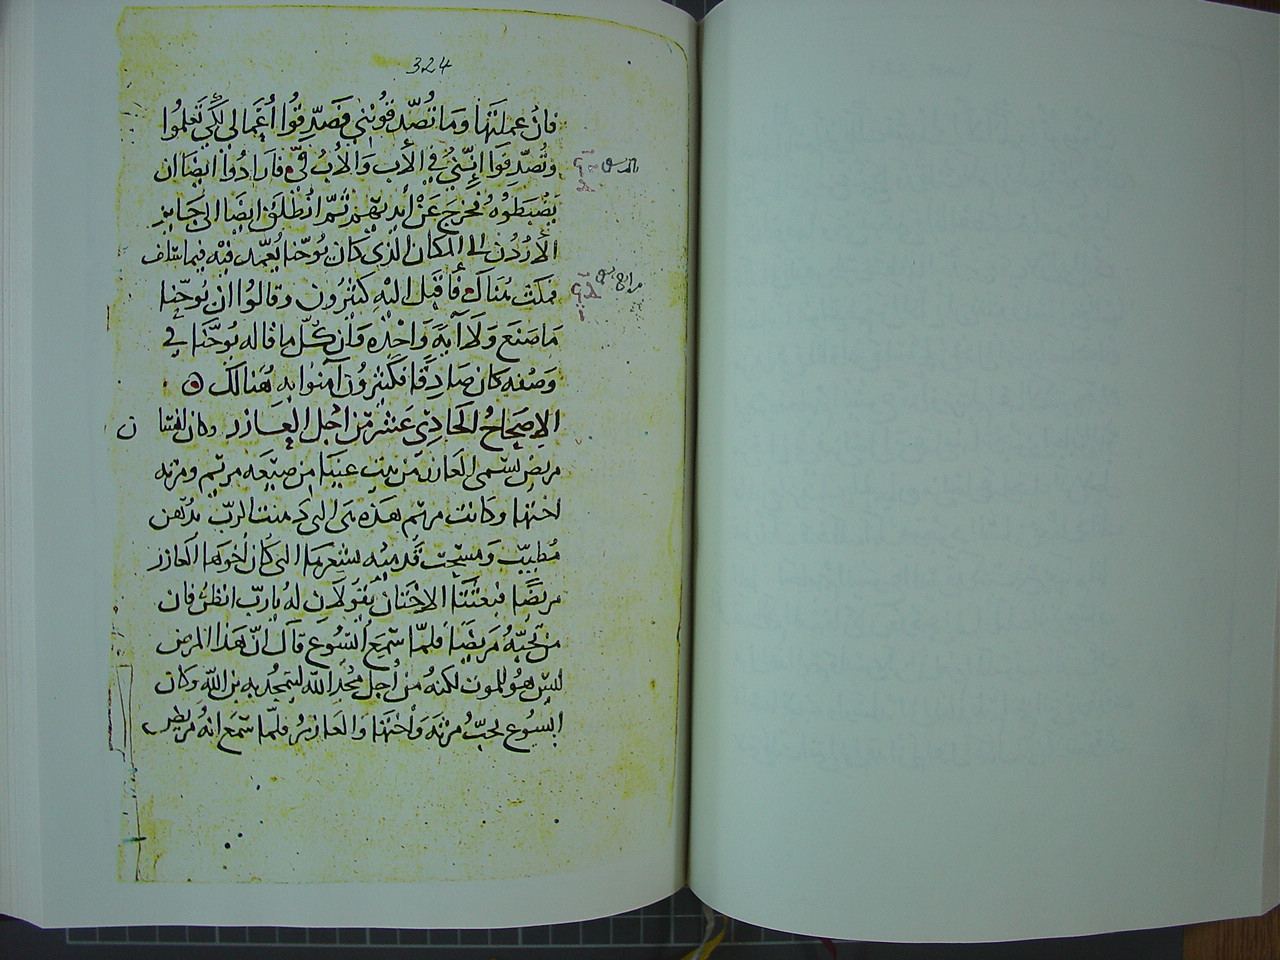 324
فان عملتها وما تُصدّقونني فصدّقوا أعمالي لكي تعلموا
وتُصدّقوا إنّني في الأب والأب فيّ فارادوا ايضا ان
يضبطوه فخرج عَن أيديهم ثم انطلق ايضا الى جانب
الأردُن الى المكان الذي كان يوحنا يُعمّد فيه فيما سلف
فمكث هُناك فأقبل اليه كثيرون وقالوا ان يوحنا
ما صنع ولا آية واحدة وان كلّ ما قاله يُوحنا في
وصفه كان صادقًا فكثيرون آمنوا به هُنالك
الإصحاح الحادي عشر من أجل العازر وكان انسان
مريض يسمى العازر من بيت عنيا من ضيعة مريم ومرثه
اختها وكانت مريم هذه هي التي دهنت الربّ بدهن
مُطيّب ومسحت قدميه بشعرها التي كان أخوها العازر
مريضًا فبعثتا الاختان يقولان له يا ربّ انظر فان
من تحبّه مَريضًا فلمّا سَمِعَ ايسُوع قال انّ هذا المرض
ليس هو للموت لكنهُ من أجل مجد الله ليتمجد به بن الله وكان
ايسوع يحبّ مرثه واختها والعازر فلمّا سمع انه مريض